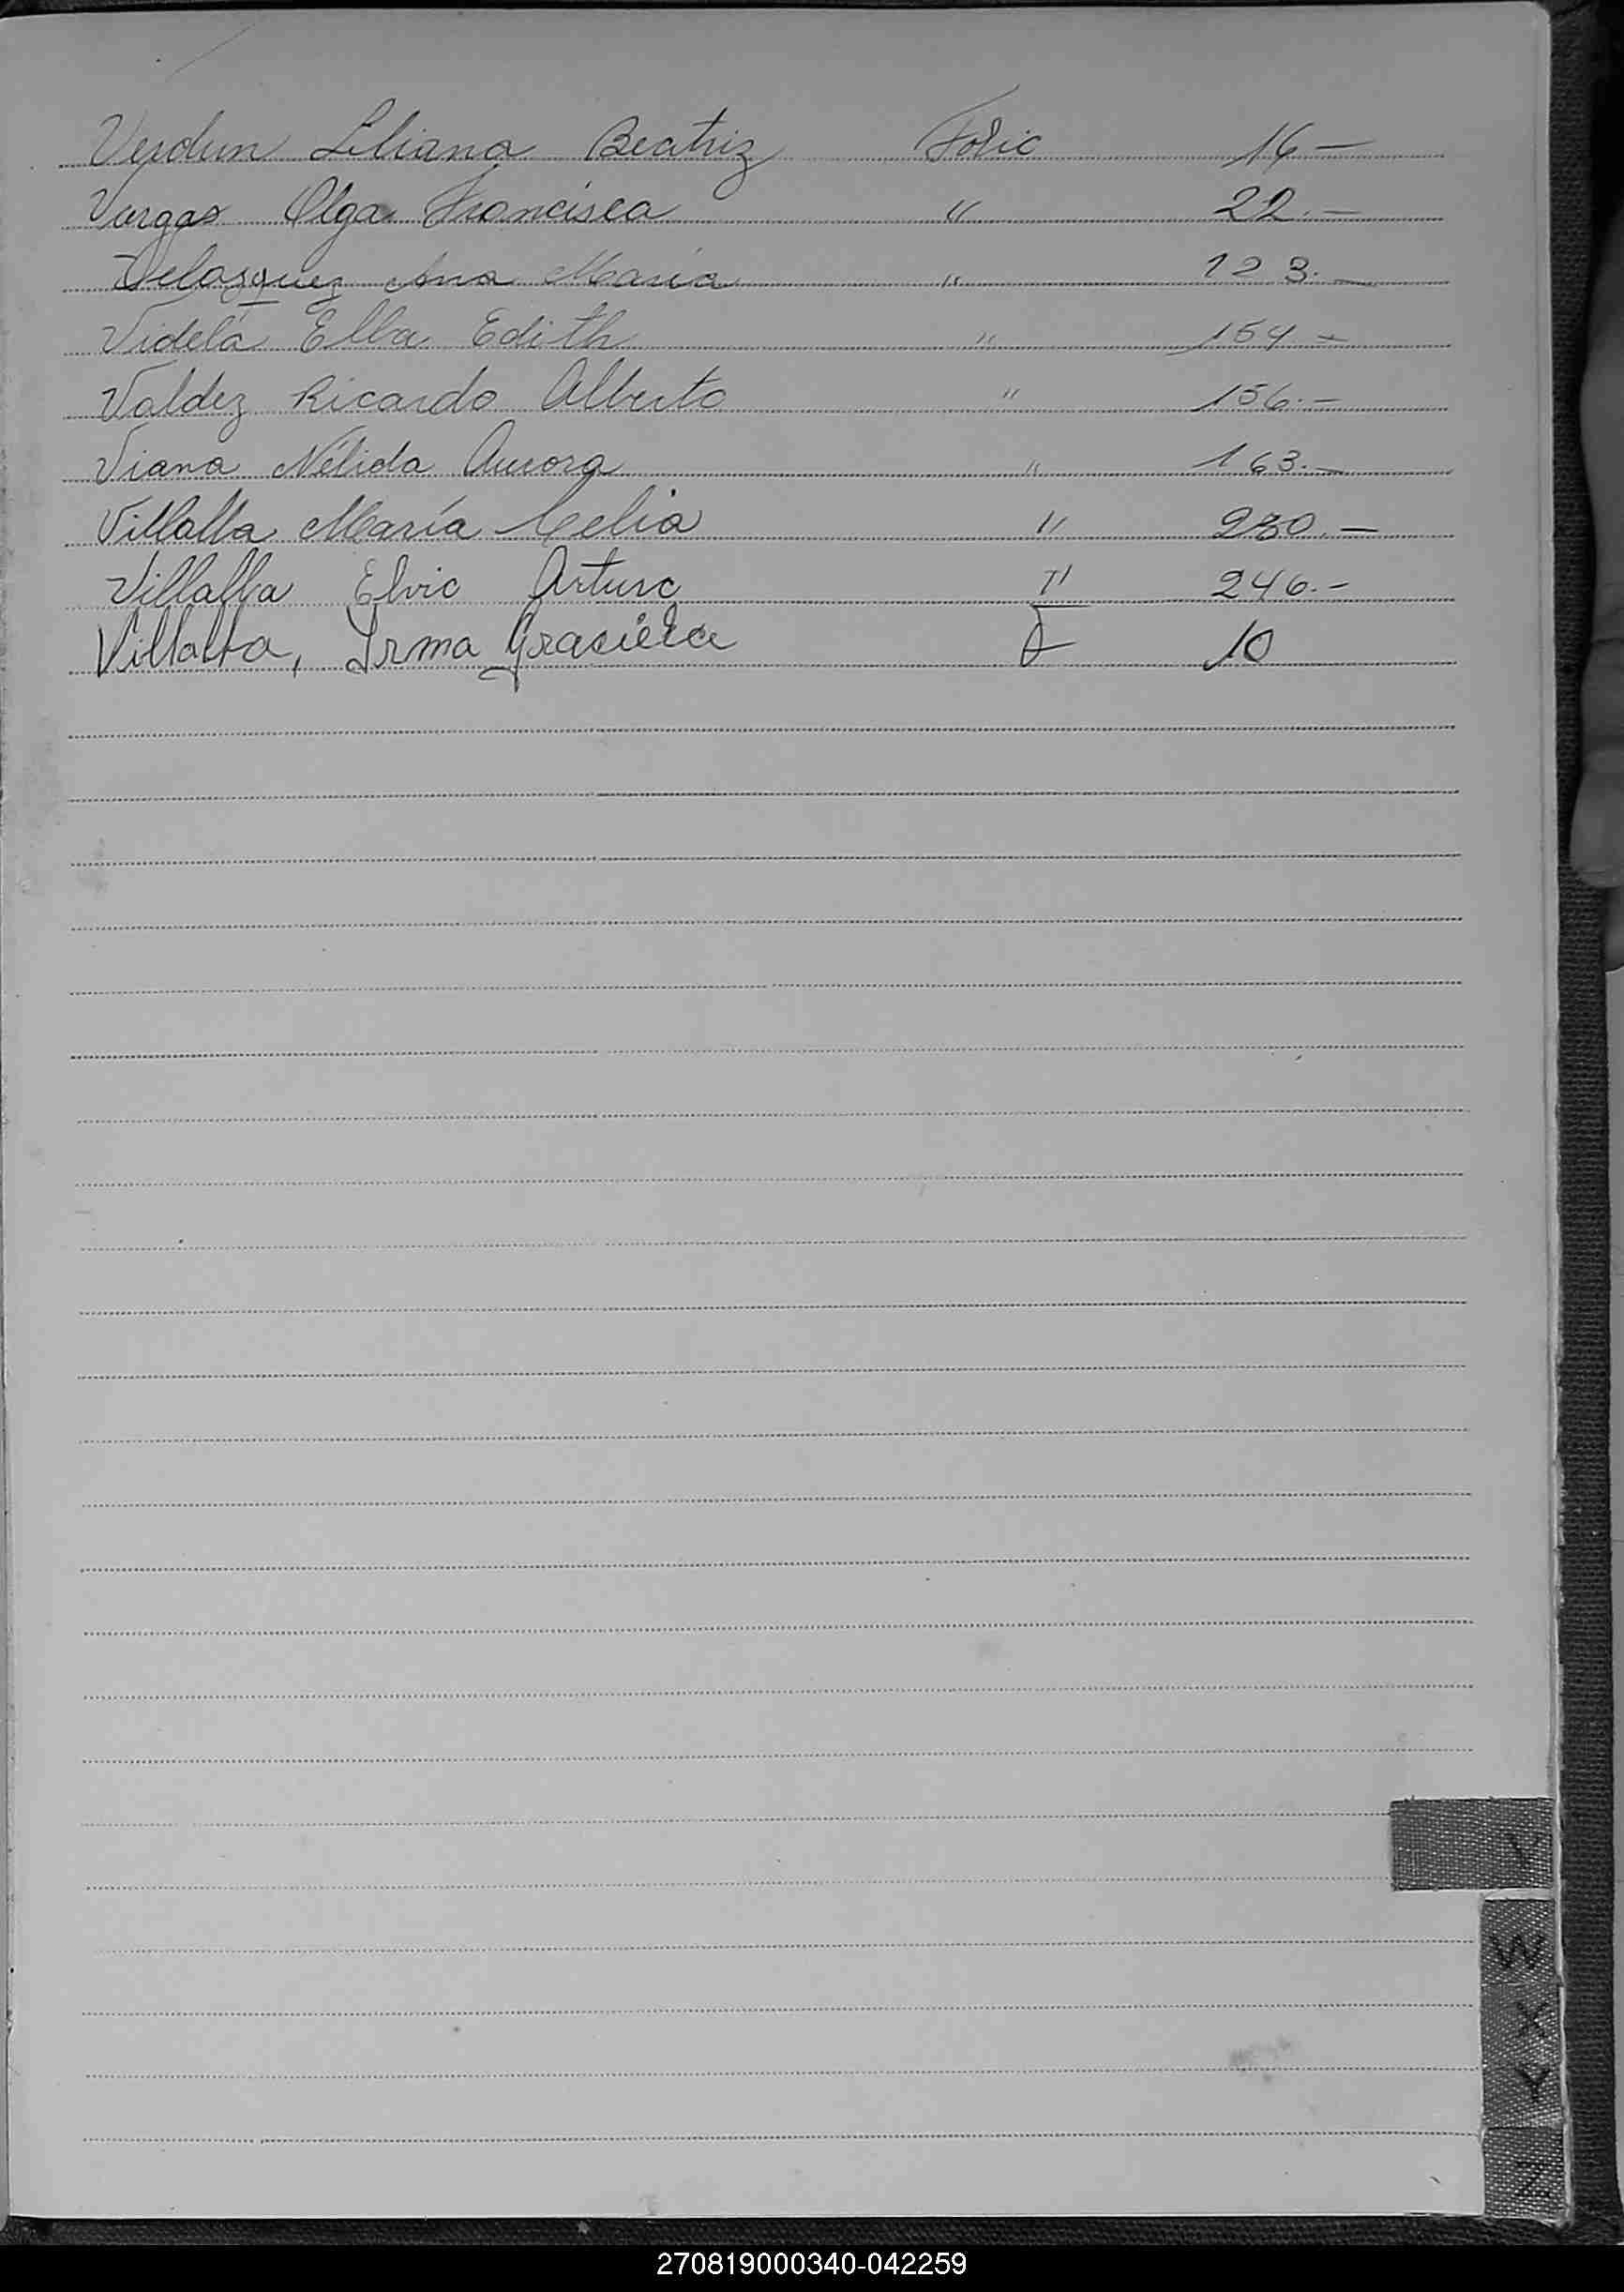 Verdun Liliana Beatriz Folio 16 -
Vargas Olga Francisca " 22.-
Velazquez Ana María " 123.-
Videla Elba Edith " 154 -
Valdez Ricardo Alberto " 156.-
Viana Nélida Aurora " 163.-
Villalba María Celia " 230.-
Villalba Elvio Arturo " 246.-
Villalba, Irma Graciela 10
V
W
X
Y
Z
270819000340-042259